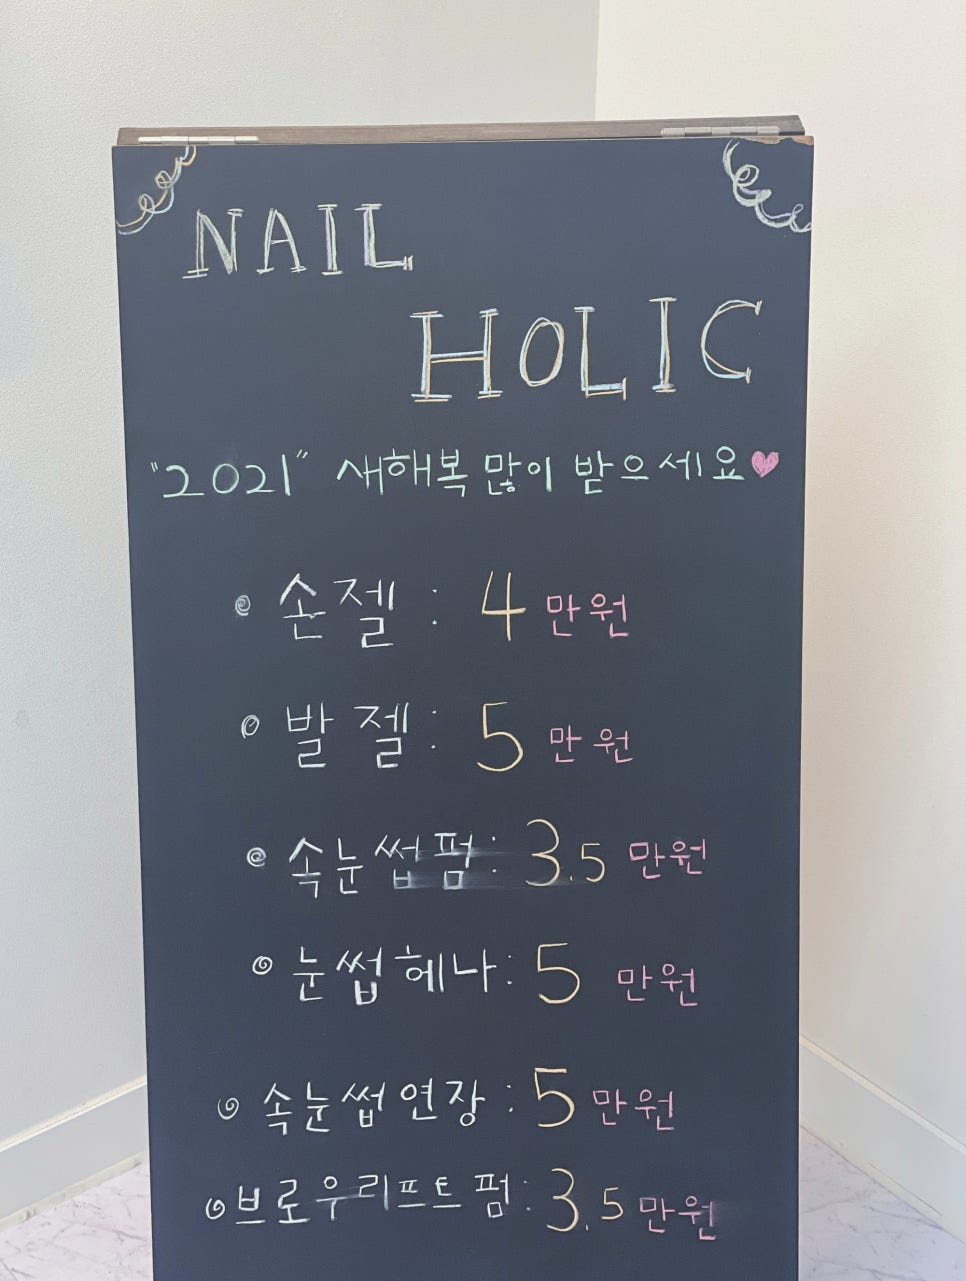 NAIL
HOLIC
"2021" 새해복 많이 받으세요♥
손젤 : 4만원
발젤 : 5만원
속눈썹펌 : 3.5만원
눈썹헤나 : 5만원
속눈썹연장 : 5만원
브로우리프트펌 : 3.5만원